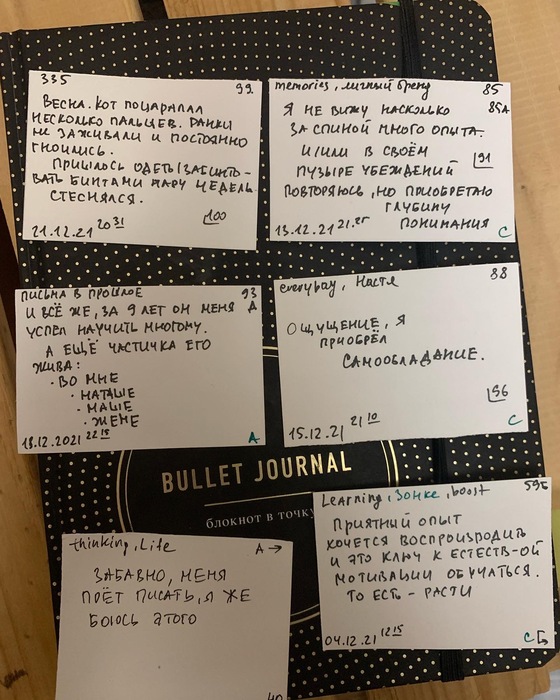 335
99
ВЕСНА. КОТ ПОЦАРАПАЛ
НЕСКОЛЬКО ПАЛЬЦЕВ. РАНКИ
НЕ ЗАЖИВАЛИ И ПОСТОЯННО
ГНОИЛИСЬ.
ПРИШЛОСЬ ОДЕТЬ/ЗАБИНТО-
ВАТЬ БИНТАМИ ПАРУ НЕДЕЛЬ.
СТЕСНЯЛСЯ.
21.12.21 20 31
100
memories, личный бренд
85
85А
Я НЕ ВИЖУ НАСКОЛЬКО
ЗА СПИНОЙ МНОГО ОПЫТА.
И/ИЛИ В СВОЁМ
91
ПУЗЫРЕ УБЕЖДЕНИЙ
ПОВТОРЯЮСЬ, НО ПРИОБРЕТАЮ
ГЛУБИНУ
ПОНИМАНИЯ
13.12.21 21.25
C
ПИСЬМА В ПРОШЛОЕ
93
А
И ВСЁ ЖЕ, ЗА 9 ЛЕТ ОН МЕНЯ
УСПЕЛ НАУЧИТЬ МНОГОМУ.
А ЕЩЁ ЧАСТИЧКА ЕГО
ЖИВА:
· ВО МНЕ
· НАТАШЕ
· МАШЕ
· ЖЕНЕ
18.12.2021 22 15
А
everyday, Настя
88
ОЩУЩЕНИЕ, Я
ПРИОБРЁЛ
САМООБЛАДАНИЕ.
56
15.12.21 21 10
C
BULLET JOURNAL
блокнот в точку
Learning, Зонке, boost
595
ПРИЯТНЫЙ ОПЫТ
ХОЧЕТСЯ ВОСПРОИЗВОДИТЬ
И ЭТО КЛЮЧ К ЕСТЕСТВ-ОЙ
МОТИВАЦИИ ОБУЧАТЬСЯ.
ТО ЕСТЬ - РАСТИ
04.12.21 12 15
C
thinking, Life
А →
ЗАБАВНО, МЕНЯ
ПРЁТ ПИСАТЬ, Я ЖЕ
БОЮСЬ ЭТОГО
40